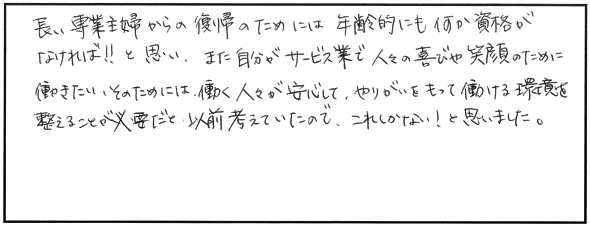 長い専業主婦からの復帰のためには年齢的にも何か資格が
なければ!!と思い、また自分がサービス業で人々の喜びや笑顔のために
働きたい、そのためには、働く人々が安心して、やりがいをもって働ける環境を
整えることが必要だと以前考えていたので、これしかない!と思いました。